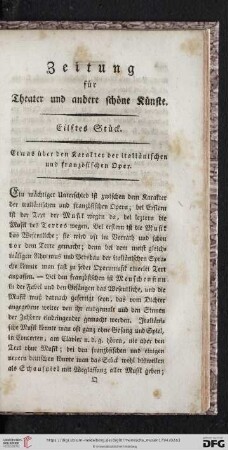 Zeitung
für
Theater und andere schöne Künste.
Eilftes Stück.
Etwas über den Karakter der italiänischen
und französischen Oper.
Ein mächtiger Unterschied ist zwischen dem Karakter
der italiänischen und französischen Opern; bei Erstern
ist der Text der Musik wegen da, bei leztern die
Musik des Textes wegen. Bei den erstern ist die Musik
das Wesentliche; sie wird oft in Vorrath und schon
vor dem Texte gemacht; denn bei dem meist gleich-
mäßigen Rhitmus und Versbau der italiänischen Spra-
che kann man fast zu jeder Opernmusik einerlei Text
anpassen. — Bei den französischen ist Menschensinn
in der Fabel und den Gesängen das Wesentliche, und die
Musik muß darnach gefertigt seyn, das vom Dichter
angegebene weiter
der Zuhörer eindringender gemacht werden. Italiäni-
sche Musik könnte man oft ganz ohne Gesang und Spiel,
in Concerten, am Clavier u. d. g. hören, nie aber den
Text ohne Musik; bei den französischen und einigen
neuern deutschen könnte man das Stück wohl bisweilen
als Schauspiel mit Weglassung aller Musik geben;